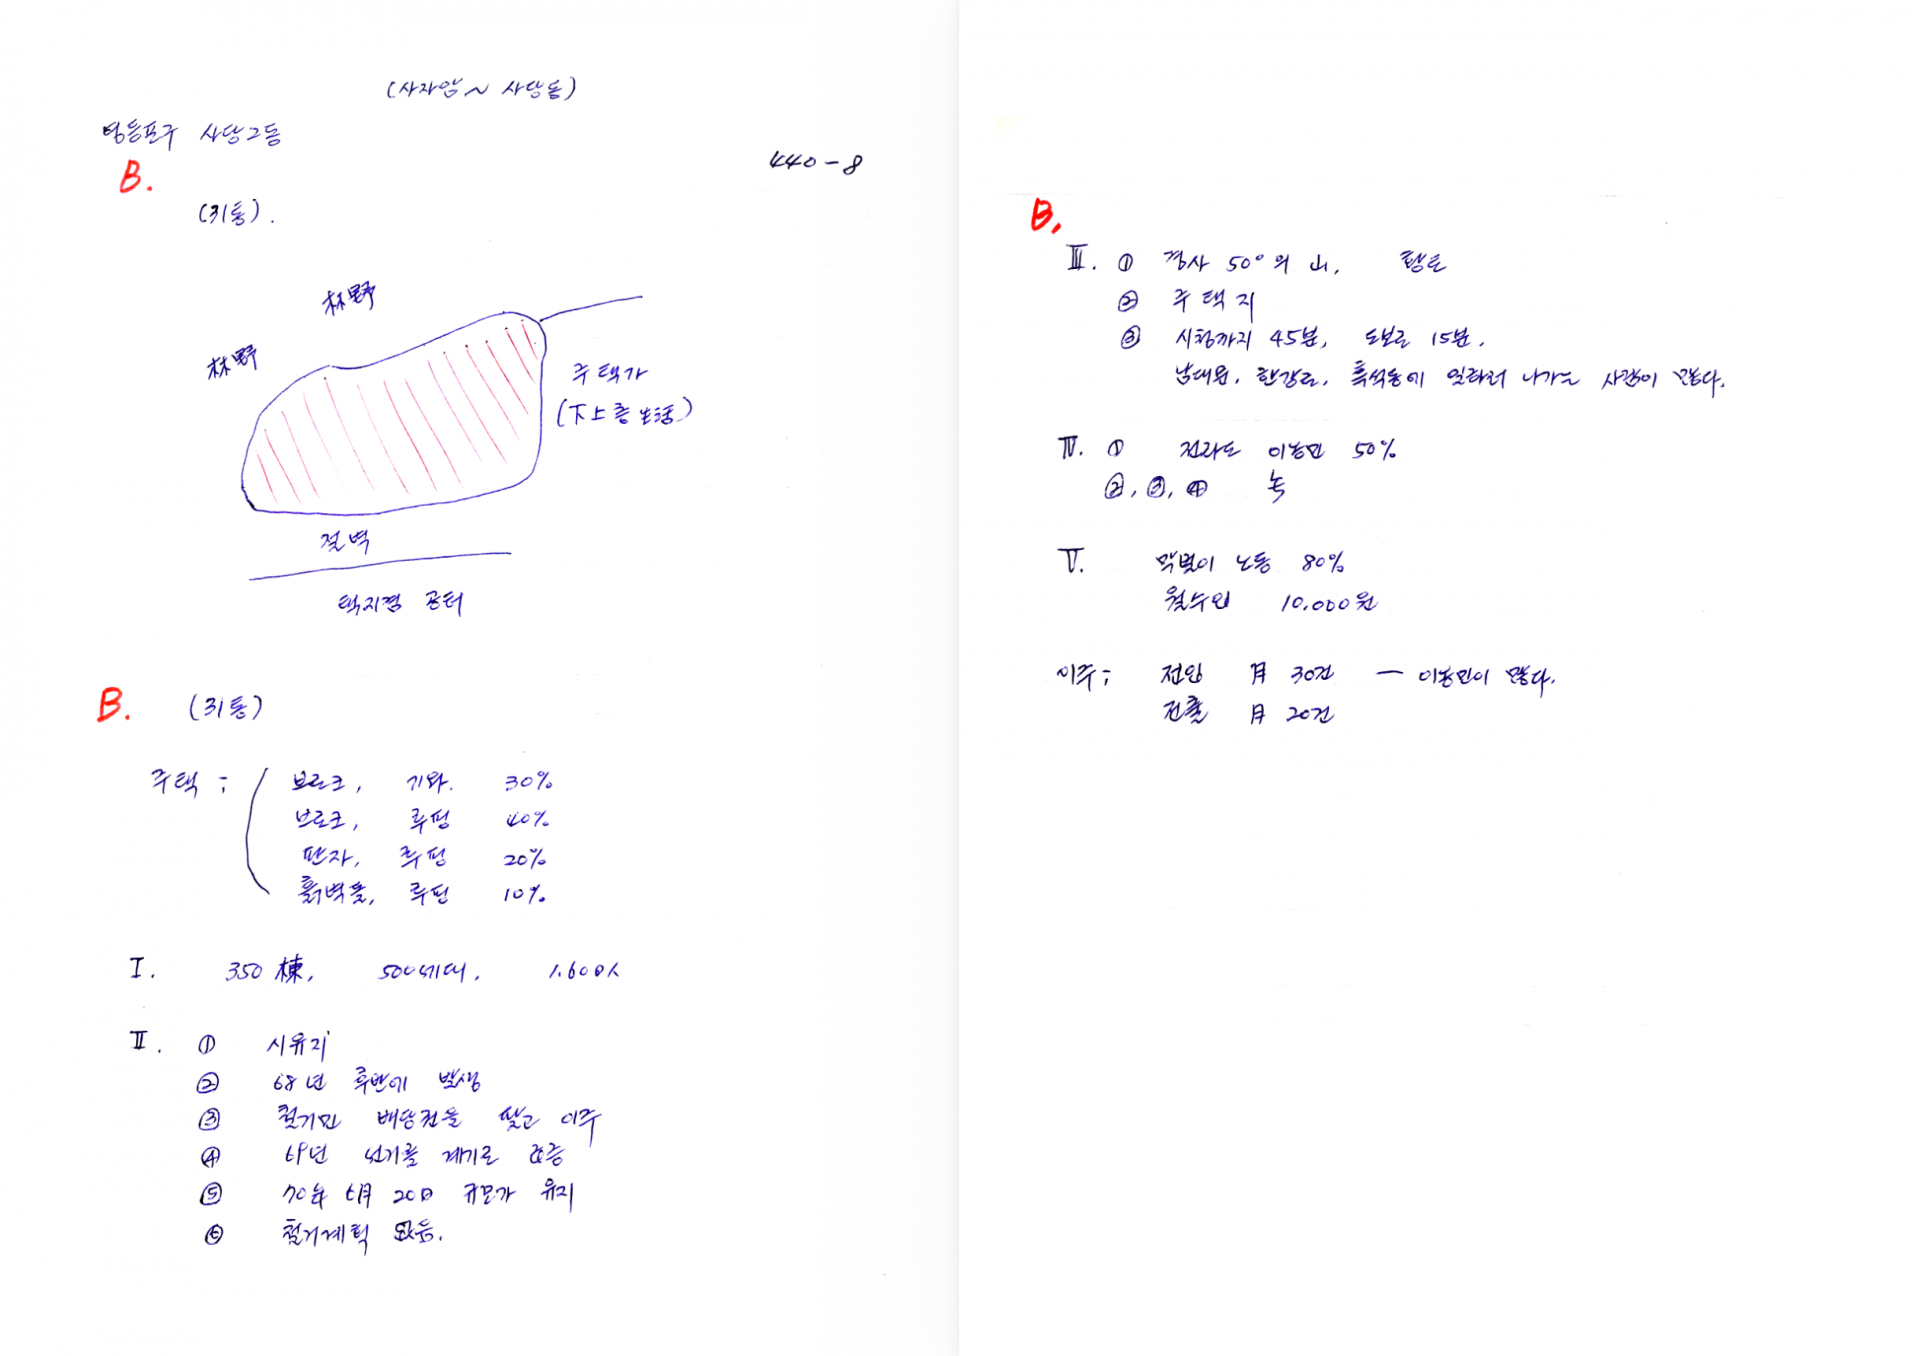 (사자암 ~ 사당동)
영등포구 사당2동
440-8
B.
(31통).
林野
林野
주택가
(下上층 生活)
절벽
택지경 공터
B. (31통)
주택; 브로크, 기와. 30%
브로크, 루핑 40%
판자, 루핑 20%
흙벽돌, 루핑 10%
I. 350棟, 500세대, 1.600人
II. ① 시유지
② 68년 후반에 발생
③ 철거민 배당권을 맞고 이주
④ 69년 선거를 계기로 급증
⑤ 70年 6月 20日 규모가 유지
⑥ 철거계획 없음.
B.
III. ① 경사 50°의 山, 황토
② 주택지
③ 시청까지 45분, 도보로 15분.
남대문, 한강로, 흑석동에 일하러 나가는 사람이 많다.
IV. ① 전라도 이농민 50%
②, ③, ④ 농
V. 막벌이 노동 80%
월수입 10.000원
이주; 전입 月 30건 — 이농민이 많다.
전출 月 20건